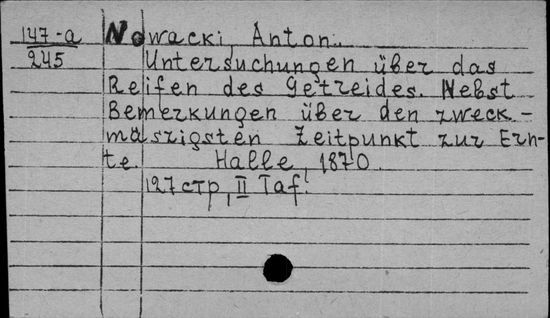 147-a Nowacki, Anton.
245 Untersuchungen über das
Reifen des Getreides. Nebst
Bemerkungen über den zweck-
mäszigsten Zeitpunkt zur Ern-
te. Halle, 1870.
127 стр, II Taf.